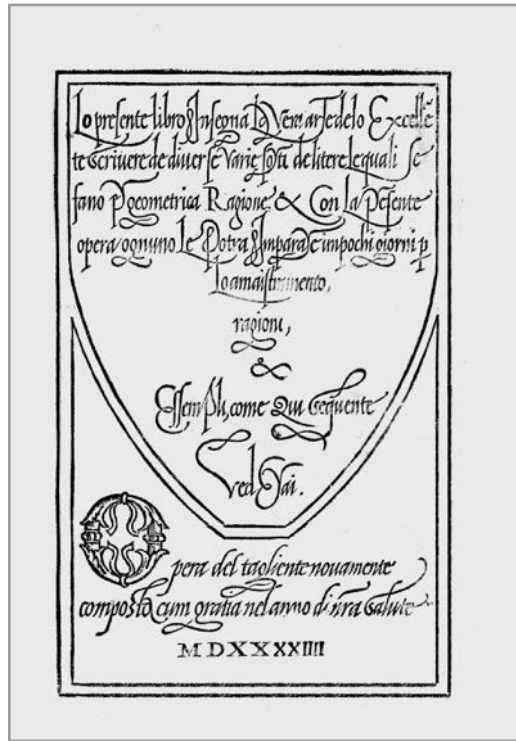 Lo presente libro Insegna La Vera arte delo Excellẽ
te Scrivere de diverse varie sorti de litere lequali se
fano p geometrica Ragione & Con La Presente
opera ognuno Le Potra Imparare in pochi giorni p
Lo amaistramento,
ragioni,
&
Essempli, come Qui Sequente
Vedrai.
Opera del tagliente novamente
composta cum gratia nel anno di nr̃a Salute
MDXXXXIIII